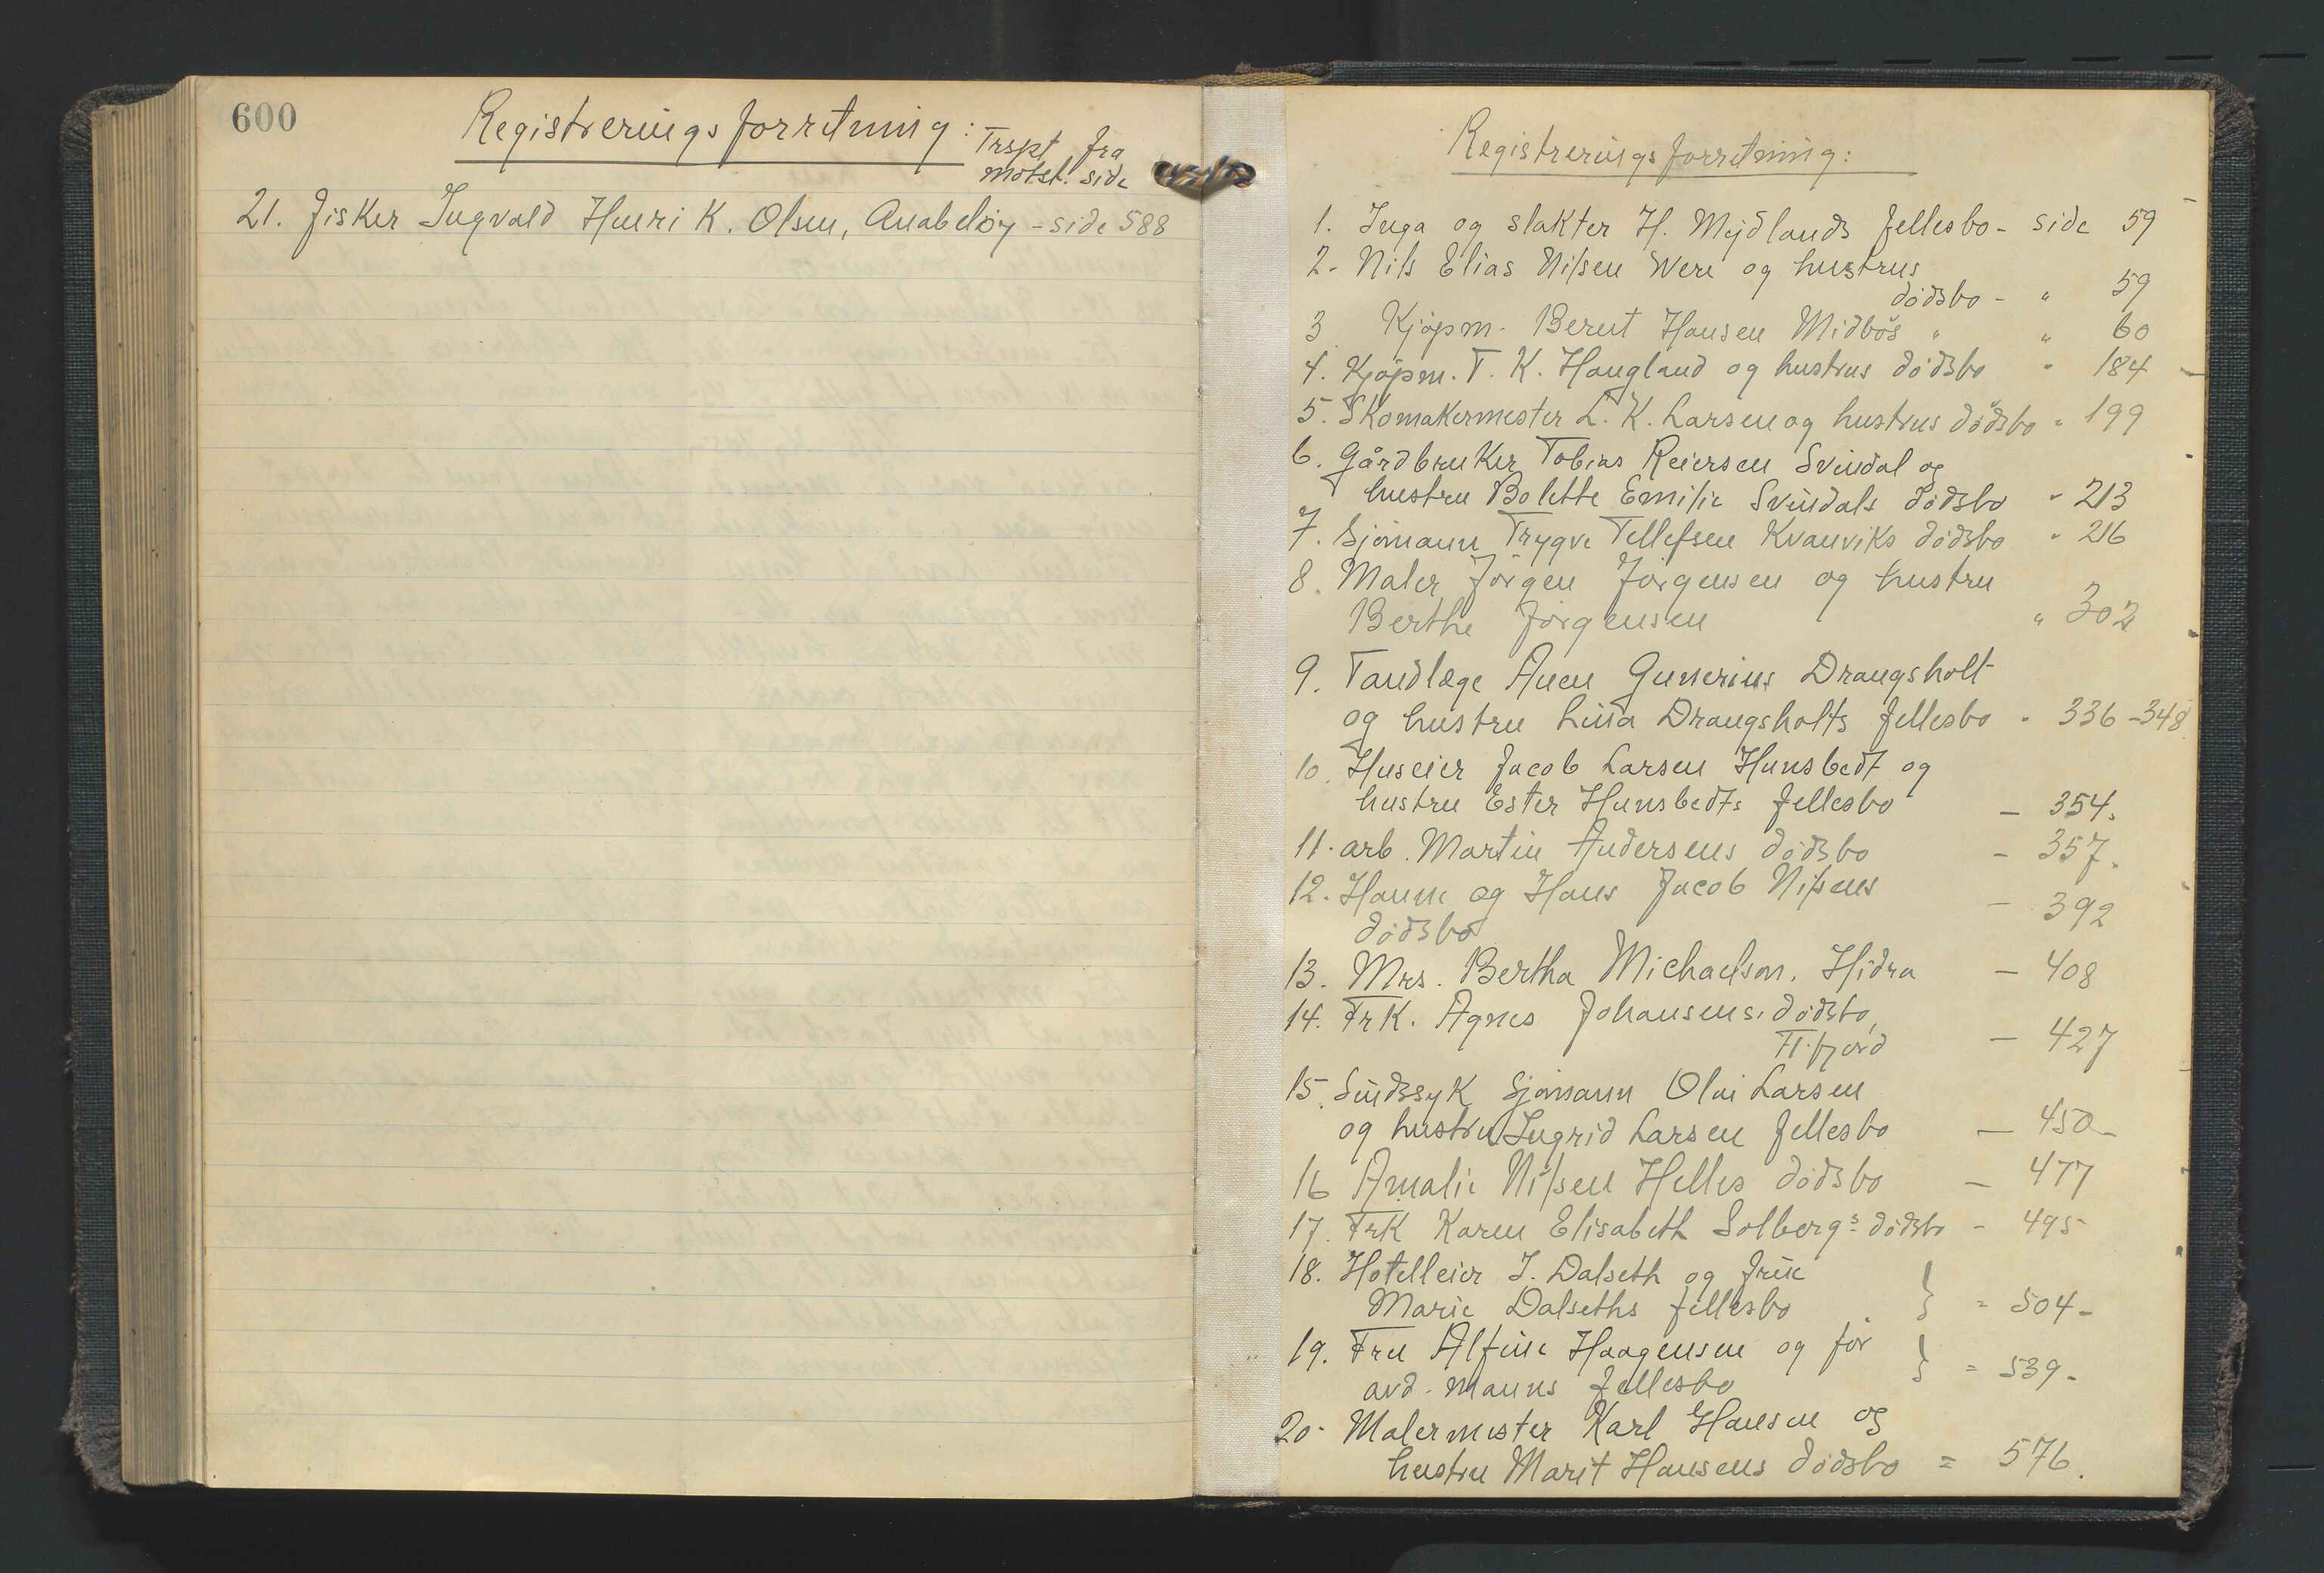 600
Registreringsforretning:
Trspt fra
motst. side
21. Fisker Ingvald Henri K. Olsen, Anabeløy - side 588
Registreringsforretning:
1. Inga og slakter H. Mydlands fellesbo - side 59
2. Nils Elias Nilsen Were og hustrus
dødsbo - " 59
3 Kjøpm. Bernt Hansen Midbøs " " 60
4. Kjøpm. T. K. Haugland og hustrus dødsbo " 184
5. Skomakermester L. K. Larsen og hustrus dødsbo " 199
6. Gårdbruker Tobias Reiersen Svindal og
hustru Bolette Emilie Svindals dødsbo " 213
7. Sjømann Trygve Tellefsen Kvanviks dødsbo " 216
8. Maler Jørgen Jørgensen og hustru
Berthe Jørgensen " 302
9. Tandlæge Anen Gunerius Drangsholt
og hustru Lina Drangsholts fellesbo " 336-348
10. Huseier Jacob Larsen Hunsbedt og
hustru Ester Hunsbedts fellesbo - 354.
11. arb. Martin Andersens dødsbo - 357.
12. Hanne og Hans Jacob Nilsens - 392
dødsbo
13. Mrs. Bertha Michaelson, Hidra - 408
14. Frk. Agnes Johansens dødsbo,
Fl.fjord - 427
15. Sindssyk sjømann Olai Larsen
og hustru Ingrid Larsen fellesbo - 450-
16 Amalie Nilsen Helles dødsbo - 477
17. Frk Karen Elisabeth Solbergs dødsbo - 495
18. Hotelleier J. Dalseth og frue
Marie Dalseths fellesbo } = 504-
19. Fru Alfine Haagensen og før
avd. manns fellesbo } = 539-
20. Malermester Karl Hansen og
hustru Marit Hansens dødsbo = 576.